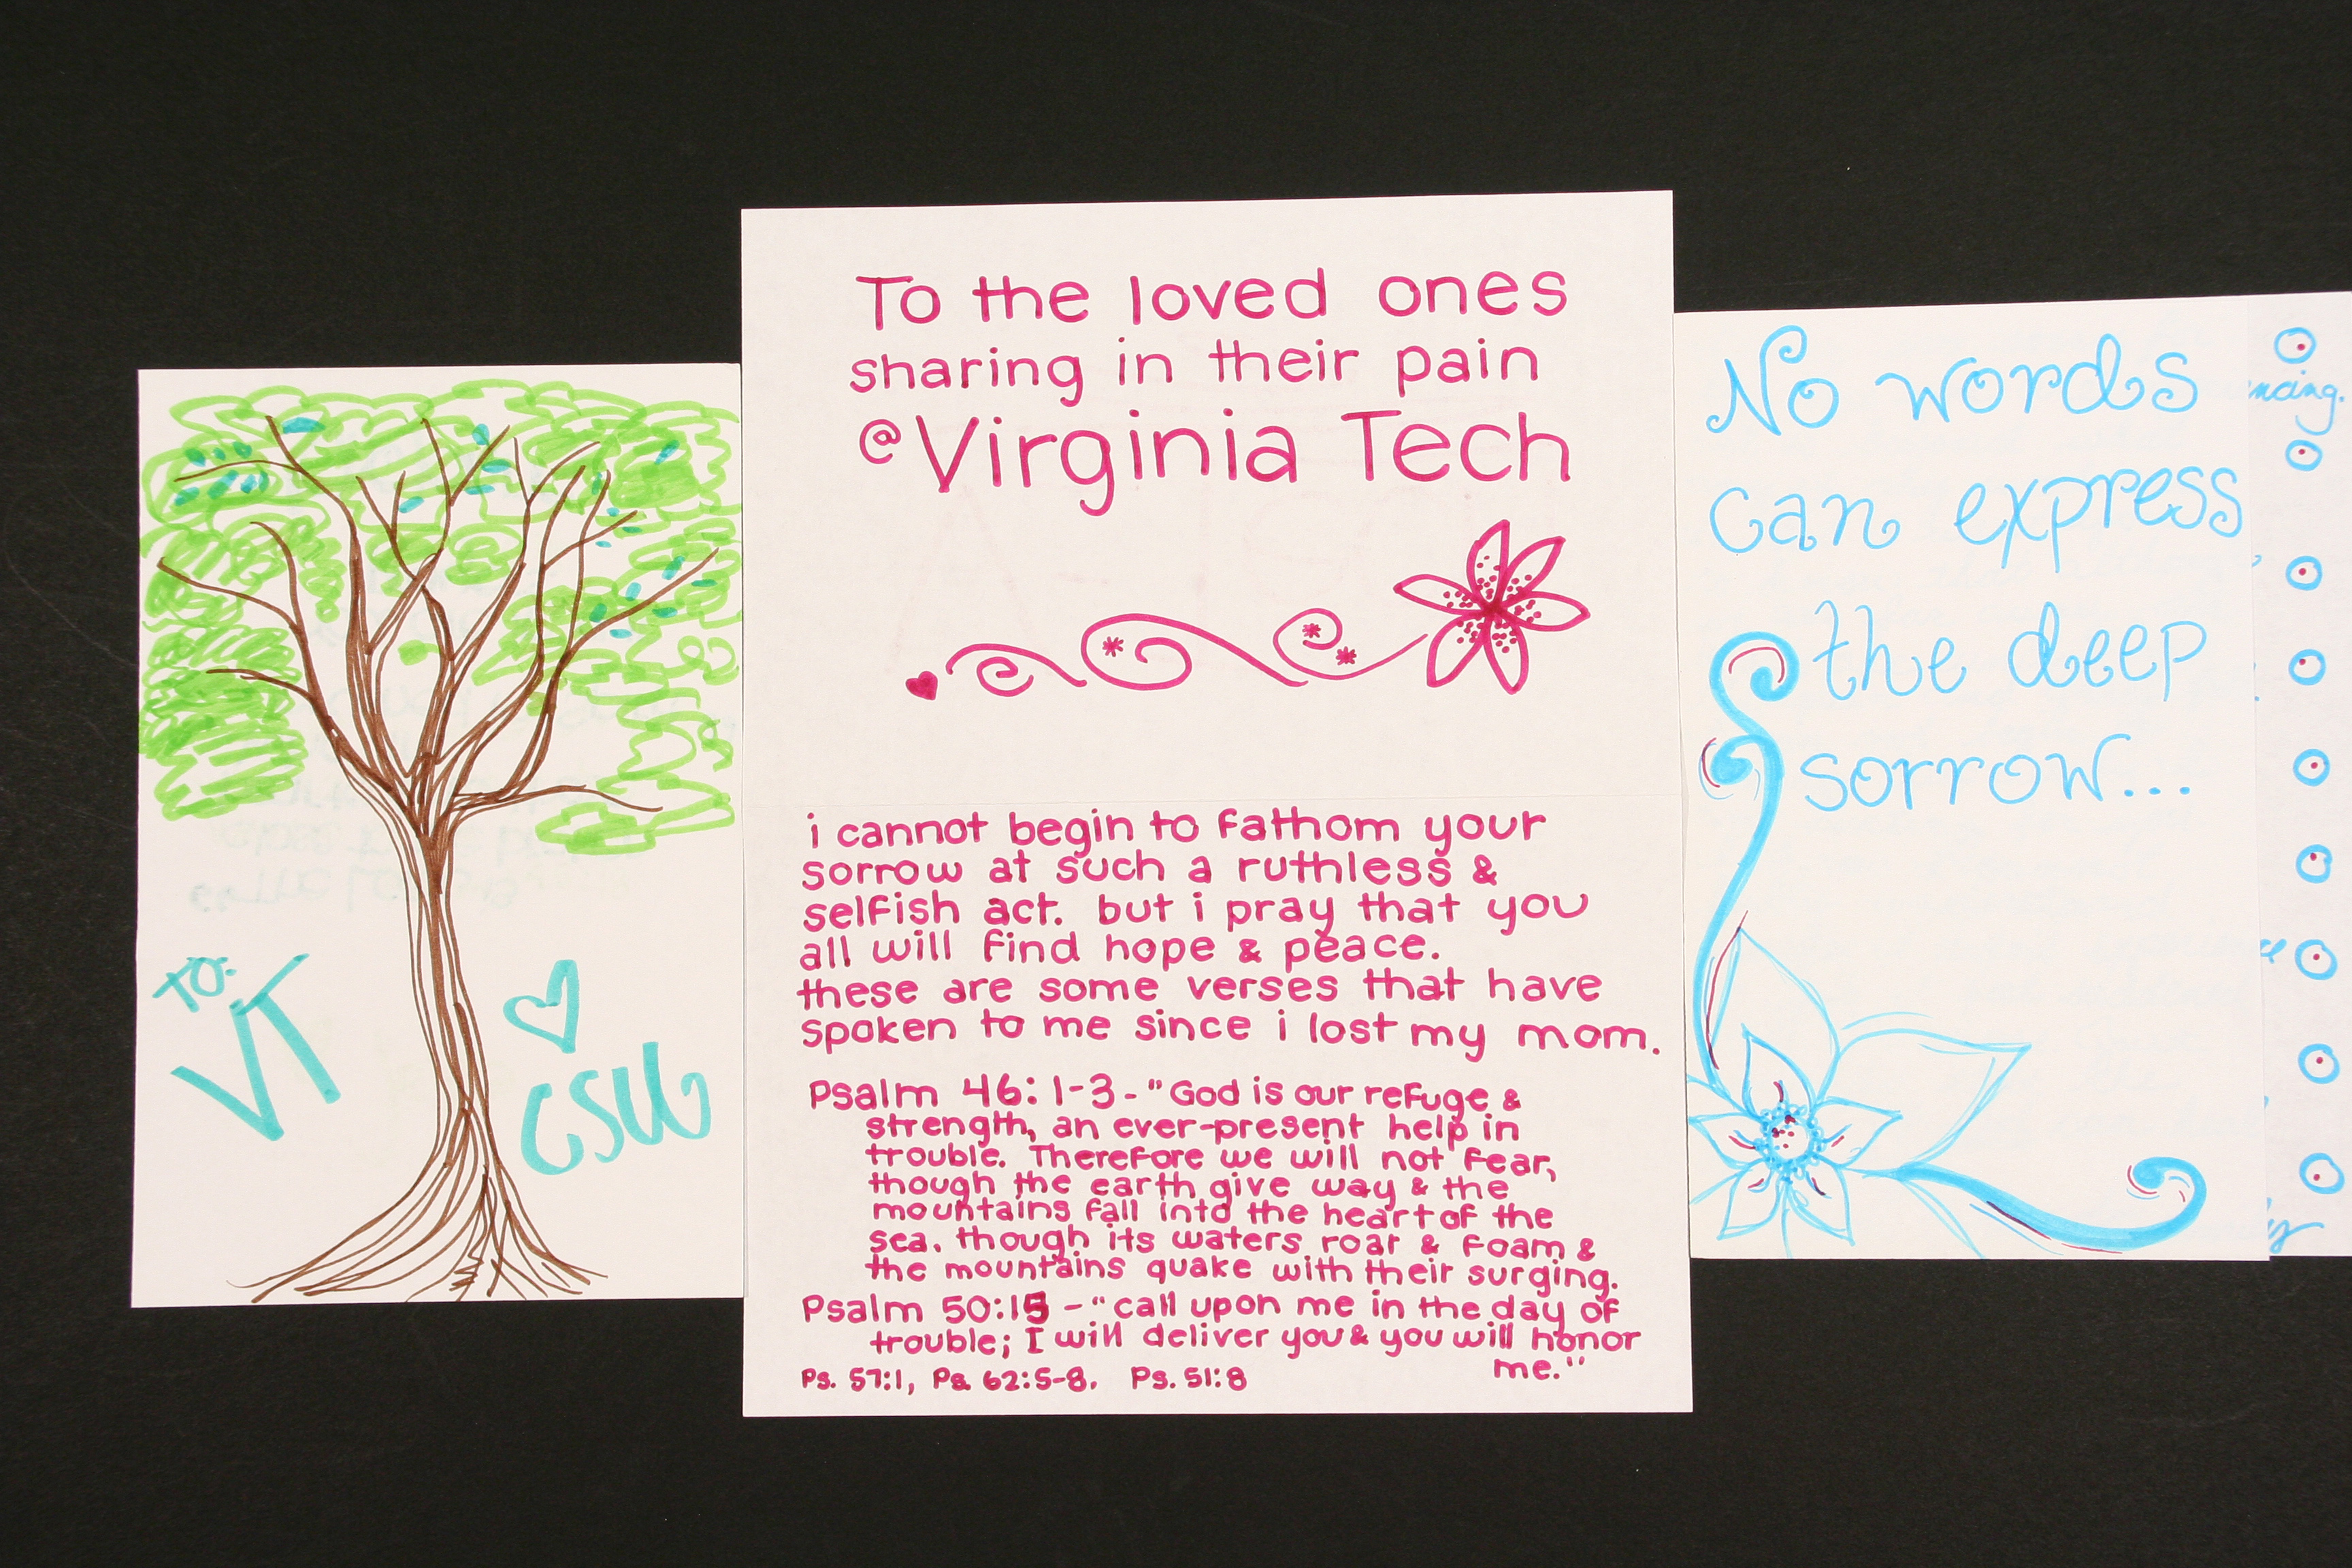 TO:
VT
CSUU
To the loved ones
sharing in their pain
@Virginia Tech
i cannot begin to fathom your
sorrow at such a ruthless &
selfish act. but i pray that you
all will find hope & peace.
these are some verses that have
spoken to me since i lost my mom.
Psalm 46:1-3-"God is our refuge &
strength, an ever-present help in
trouble. Therefore we will not fear,
though the earth give way & the
mountains fall into the heart of the
sea. though its waters roar & foam &
the mountains quake with their surging.
Psalm 50:15-"call upon me in the day of
trouble; I will deliver you & you will honor
me."
Ps. 57:1, Ps. 62:5-8. Ps. 51:8
No words
can express
the deep
sorrow...